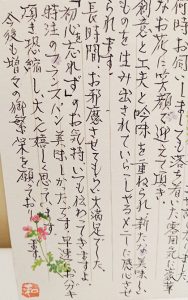 何時お伺いしても落ち着いた雰囲気と豪華
みお花に笑顔で迎えて頂き
創意と工夫と吟味を重ねられ新たな美味しい
ものを生み出されていらっしゃるメニューに感心させ
られます。
長時間お邪魔させてもらい大満足でした。
「初心忘れず」のお気持いても伝わってきますよ。
特注のフランスパン美味しかったです。早速おハガキ
頂き恐縮し大へん嬉しく思っています。
今後も増々の御繁栄を願っております。
和